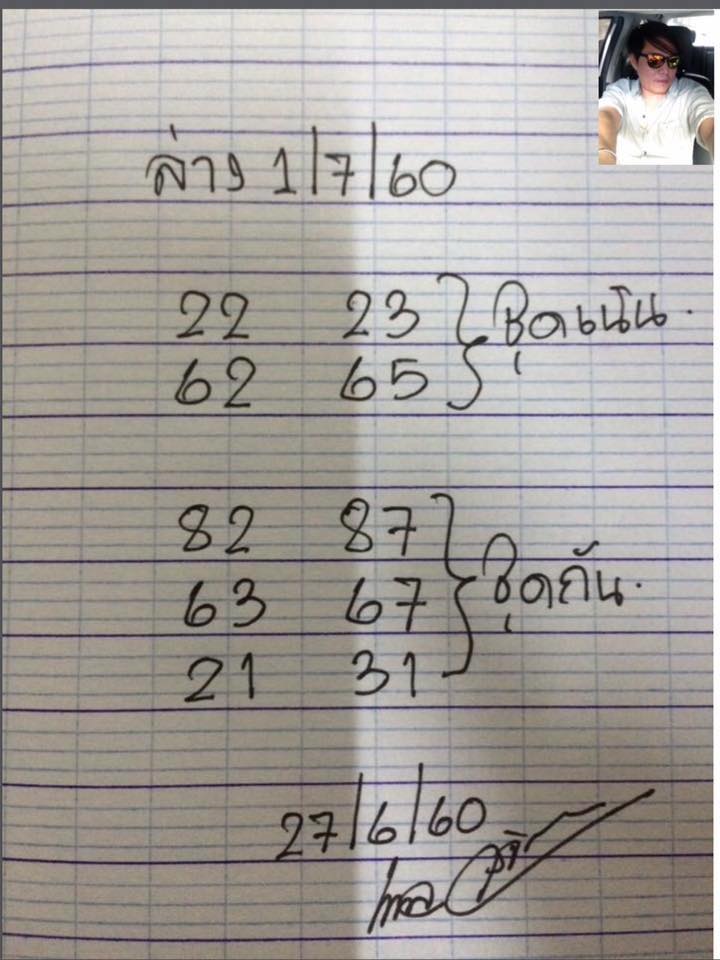 ล่าง 1/7/60
22 23
62 65
ชุดเน้น.
82 87
63 67
21 31
ชุดกัน.
27/6/60